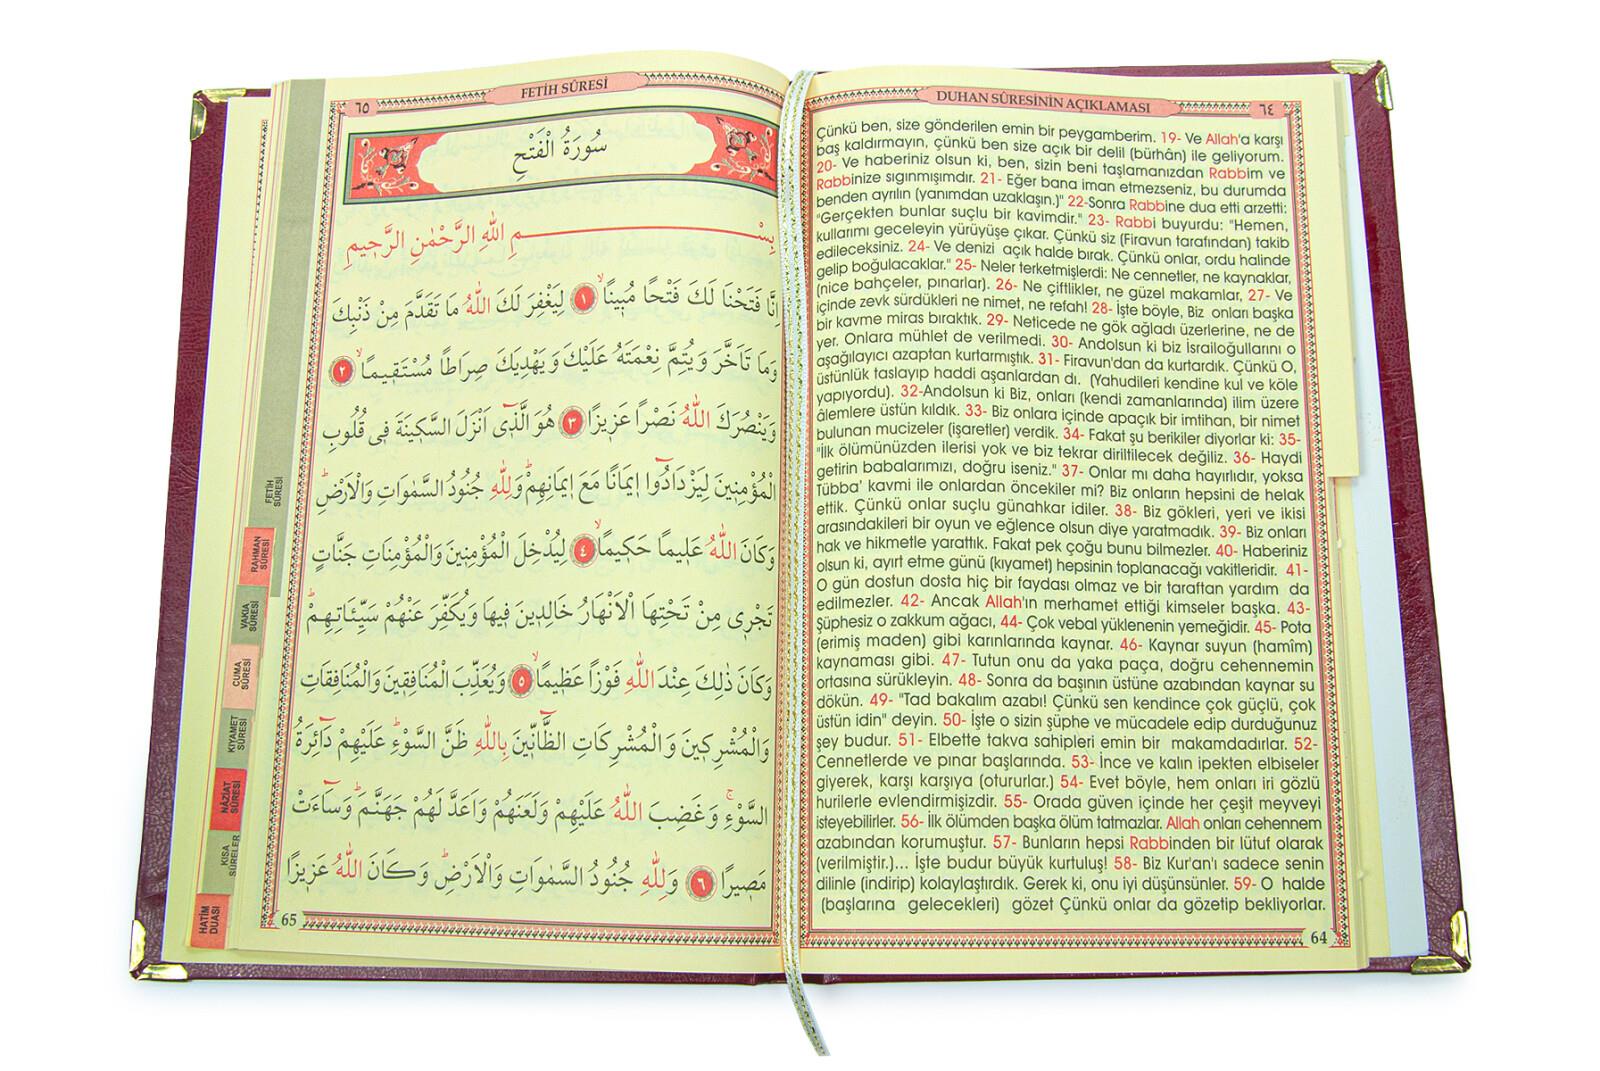 DUHAN SÛRESİNİN AÇIKLAMASI
٦٤
Çünkü ben, size gönderilen emin bir peygamberim. 19- Ve Allah'a karşı
baş kaldırmayın, çünkü ben size açık bir delil (bürhân) ile geliyorum.
20- Ve haberiniz olsun ki, ben, sizin beni taşlamanızdan Rabbim ve
Rabbinize sıgınmışımdır. 21- Eğer bana iman etmezseniz, bu durumda
benden ayrılın (yanımdan uzaklaşın.)" 22-Sonra Rabbine dua etti arzetti:
"Gerçekten bunlar suçlu bir kavimdir." 23- Rabbi buyurdu: "Hemen,
kullarımı geceleyin yürüyüşe çıkar. Çünkü siz (Firavun tarafından) takib
edileceksiniz. 24- Ve denizi açık halde bırak. Çünkü onlar, ordu halinde
gelip boğulacaklar." 25- Neler terketmişlerdi: Ne cennetler, ne kaynaklar,
(nice bahçeler, pınarlar). 26- Ne çiftlikler, ne güzel makamlar, 27- Ve
içinde zevk sürdükleri ne nimet, ne refah! 28- İşte böyle, Biz onları başka
bir kavme miras bıraktık. 29- Neticede ne gök ağladı üzerlerine, ne de
yer. Onlara mühlet de verilmedi. 30- Andolsun ki biz İsrailoğullarını o
aşağılayıcı azaptan kurtarmıştık. 31- Firavun'dan da kurtardık. Çünkü O,
üstünlük taslayıp haddi aşanlardan dı. (Yahudileri kendine kul ve köle
yapıyordu). 32-Andolsun ki Biz, onları (kendi zamanlarında) ilim üzere
âlemlere üstün kıldık. 33- Biz onlara içinde apaçık bir imtihan, bir nimet
bulunan mucizeler (işaretler) verdik. 34- Fakat şu berikiler diyorlar ki: 35-
"İlk ölümünüzden ilerisi yok ve biz tekrar diriltilecek değiliz. 36- Haydi
getirin babalarımızı, doğru iseniz." 37- Onlar mı daha hayırlıdır, yoksa
Tübba' kavmi ile onlardan öncekiler mi? Biz onların hepsini de helak
ettik. Çünkü onlar suçlu günahkar idiler. 38- Biz gökleri, yeri ve ikisi
arasındakileri bir oyun ve eğlence olsun diye yaratmadık. 39- Biz onları
hak ve hikmetle yarattık. Fakat pek çoğu bunu bilmezler. 40- Haberiniz
olsun ki, ayırt etme günü (kıyamet) hepsinin toplanacağı vakitleridir. 41-
O gün dostun dosta hiç bir faydası olmaz ve bir taraftan yardım da
edilmezler. 42- Ancak Allah'ın merhamet ettiği kimseler başka. 43-
Şüphesiz o zakkum ağacı, 44- Çok vebal yüklenenin yemeğidir. 45- Pota
(erimiş maden) gibi karınlarında kaynar. 46- Kaynar suyun (hamîm)
kaynaması gibi. 47- Tutun onu da yaka paça, doğru cehennemin
ortasına sürükleyin. 48- Sonra da başının üstüne azabından kaynar su
dökün. 49- "Tad bakalım azabı! Çünkü sen kendince çok güçlü, çok
üstün idin" deyin. 50- İşte o sizin şüphe ve mücadele edip durduğunuz
şey budur. 51- Elbette takva sahipleri emin bir makamdadırlar. 52-
Cennetlerde ve pınar başlarında. 53- İnce ve kalın ipekten elbiseler
giyerek, karşı karşıya (otururlar.) 54- Evet böyle, hem onları iri gözlü
hurilerle evlendirmişizdir. 55- Orada güven içinde her çeşit meyveyi
isteyebilirler. 56- İlk ölümden başka ölüm tatmazlar. Allah onları cehennem
azabından korumuştur. 57- Bunların hepsi Rabbinden bir lütuf olarak
(verilmiştir.)... İşte budur büyük kurtuluş! 58- Biz Kur'an'ı sadece senin
dilinle (indirip) kolaylaştırdık. Gerek ki, onu iyi düşünsünler. 59- O halde
(başlarına gelecekleri) gözet Çünkü onlar da gözetip bekliyorlar.
64
٦٥
FETİH SÛRESİ
سُورَةُ الْفَتْحِ
بِسْمِ اللهِ الرَّحْمٰنِ الرَّح۪يمِ
اِنَّا فَتَحْنَا لَكَ فَتْحًا مُب۪ينًاۙ ١ لِيَغْفِرَ لَكَ اللهُ مَا تَقَدَّمَ مِنْ ذَنْبِكَ
وَمَا تَاَخَّرَ وَيُتِمَّ نِعْمَتَهُ عَلَيْكَ وَيَهْدِيَكَ صِرَاطًا مُسْتَق۪يمًاۙ ٢
وَيَنْصُرَكَ اللهُ نَصْرًا عَز۪يزًا ٣ هُوَ الَّذ۪ٓي اَنْزَلَ السَّك۪ينَةَ ف۪ي قُلُوبِ
الْمُؤْمِن۪ينَ لِيَزْدَادُٓوا ا۪يمَانًا مَعَ ا۪يمَانِهِمْۜ وَلِلّٰهِ جُنُودُ السَّمٰوَاتِ وَالْاَرْضِۜ
وَكَانَ اللهُ عَل۪يمًا حَك۪يمًاۙ ٤ لِيُدْخِلَ الْمُؤْمِن۪ينَ وَالْمُؤْمِنَاتِ جَنَّاتٍ
تَجْر۪ي مِنْ تَحْتِهَا الْاَنْهَارُ خَالِد۪ينَ ف۪يهَا وَيُكَفِّرَ عَنْهُمْ سَيِّـَٔاتِهِمْۜ
وَكَانَ ذٰلِكَ عِنْدَ اللهِ فَوْزًا عَظ۪يمًاۙ ٥ وَيُعَذِّبَ الْمُنَافِق۪ينَ وَالْمُنَافِقَاتِ
وَالْمُشْرِك۪ينَ وَالْمُشْرِكَاتِ الظَّٓانّ۪ينَ بِاللهِ ظَنَّ السَّوْءِۜ عَلَيْهِمْ دَٓائِرَةُ
السَّوْءِۚ وَغَضِبَ اللهُ عَلَيْهِمْ وَلَعَنَهُمْ وَاَعَدَّ لَهُمْ جَهَنَّمَۜ وَسَٓاءَتْ
مَص۪يرًا ٦ وَلِلّٰهِ جُنُودُ السَّمٰوَاتِ وَالْاَرْضِۜ وَكَانَ اللهُ عَز۪يزًا
65
FETİH
SÛRESİ
RAHMAN
SÛRESİ
VAKIA
SÛRESİ
CUMA
SÛRESİ
KIYAMET
SÛRESİ
NÂZİAT
SÛRESİ
KISA
SÛRELER
HATİM
DUASI